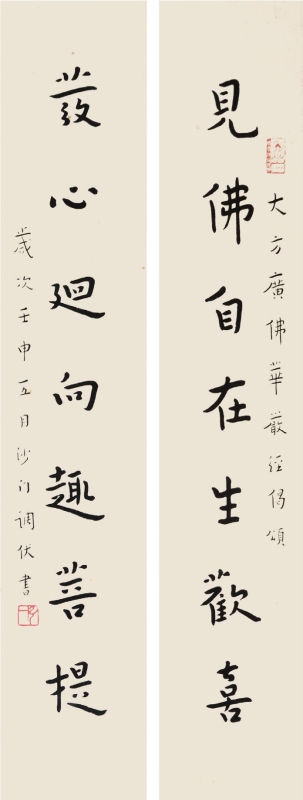 大方廣佛華嚴經偈頌
見佛自在生歡喜
發心迴向趣菩提
歲次壬申五月沙門調伏書